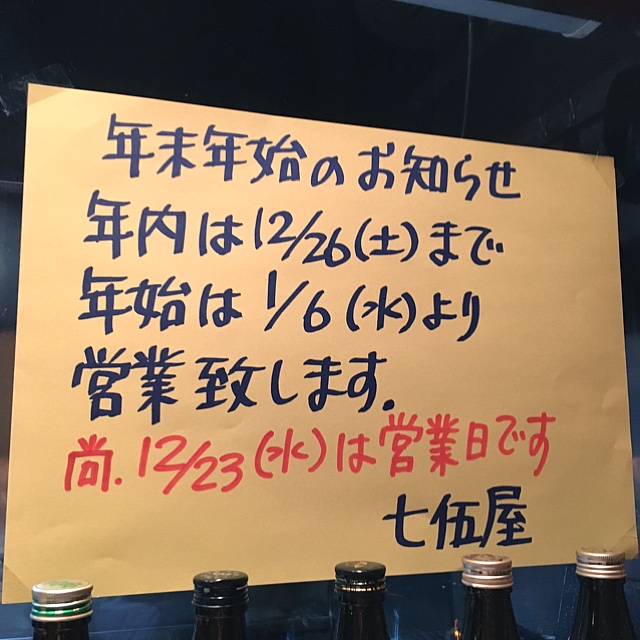 年末年始のお知らせ
年内は12/26(土)まで
年始は1/6(水)より
営業致します.
尚.12/23(水)は営業日です
七伍屋